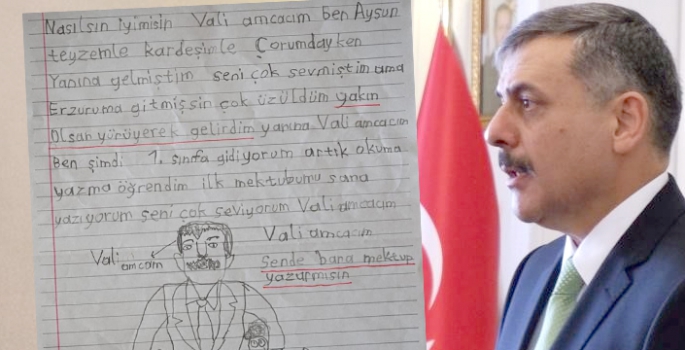 Nasılsın iyimisin Vali amcacım ben Aysun
teyzemle kardeşimle Çorumdayken
Yanına gelmiştim seni çok sevmiştim ama
Erzuruma gitmişsin çok üzüldüm yakın
Olsan yürüyerek gelirdim yanına Vali amcacım
Ben şimdi 1. sınfa gidiyorum artık okuma
yazma öğrendim ilk mektubumu sana
yazıyorum seni çok seviyorum Vali amcacım
Vali amcacım
Vali amcam
Sende bana mektup
yazarmısın